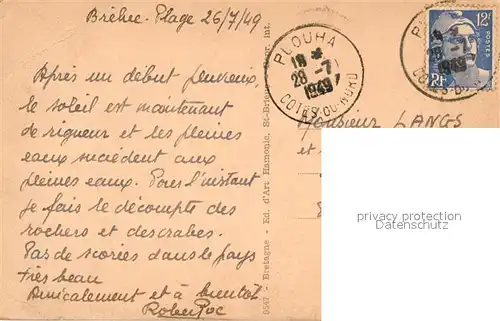 Bréhec-Plage 26/7/49
Après un début pluvieux,
le soleil est maintenant
de rigueur et les pleines
eaux succèdent aux
pleines eaux. Pour l'instant
je fais le décompte des
rochers et des crabes.
Pas de scories dans le pays
très beau
Amicalement et à bientôt
Bretagne - Ed. d'Art Hamonic, St-Brieuc
PLOUHA
18 *
28 -7
1949
COTES-DU-NORD
12F
POSTES
RF
28 -7
1949
COTES-DU-NORD
Monsieur LANGS
et
privacy protection
Datenschutz